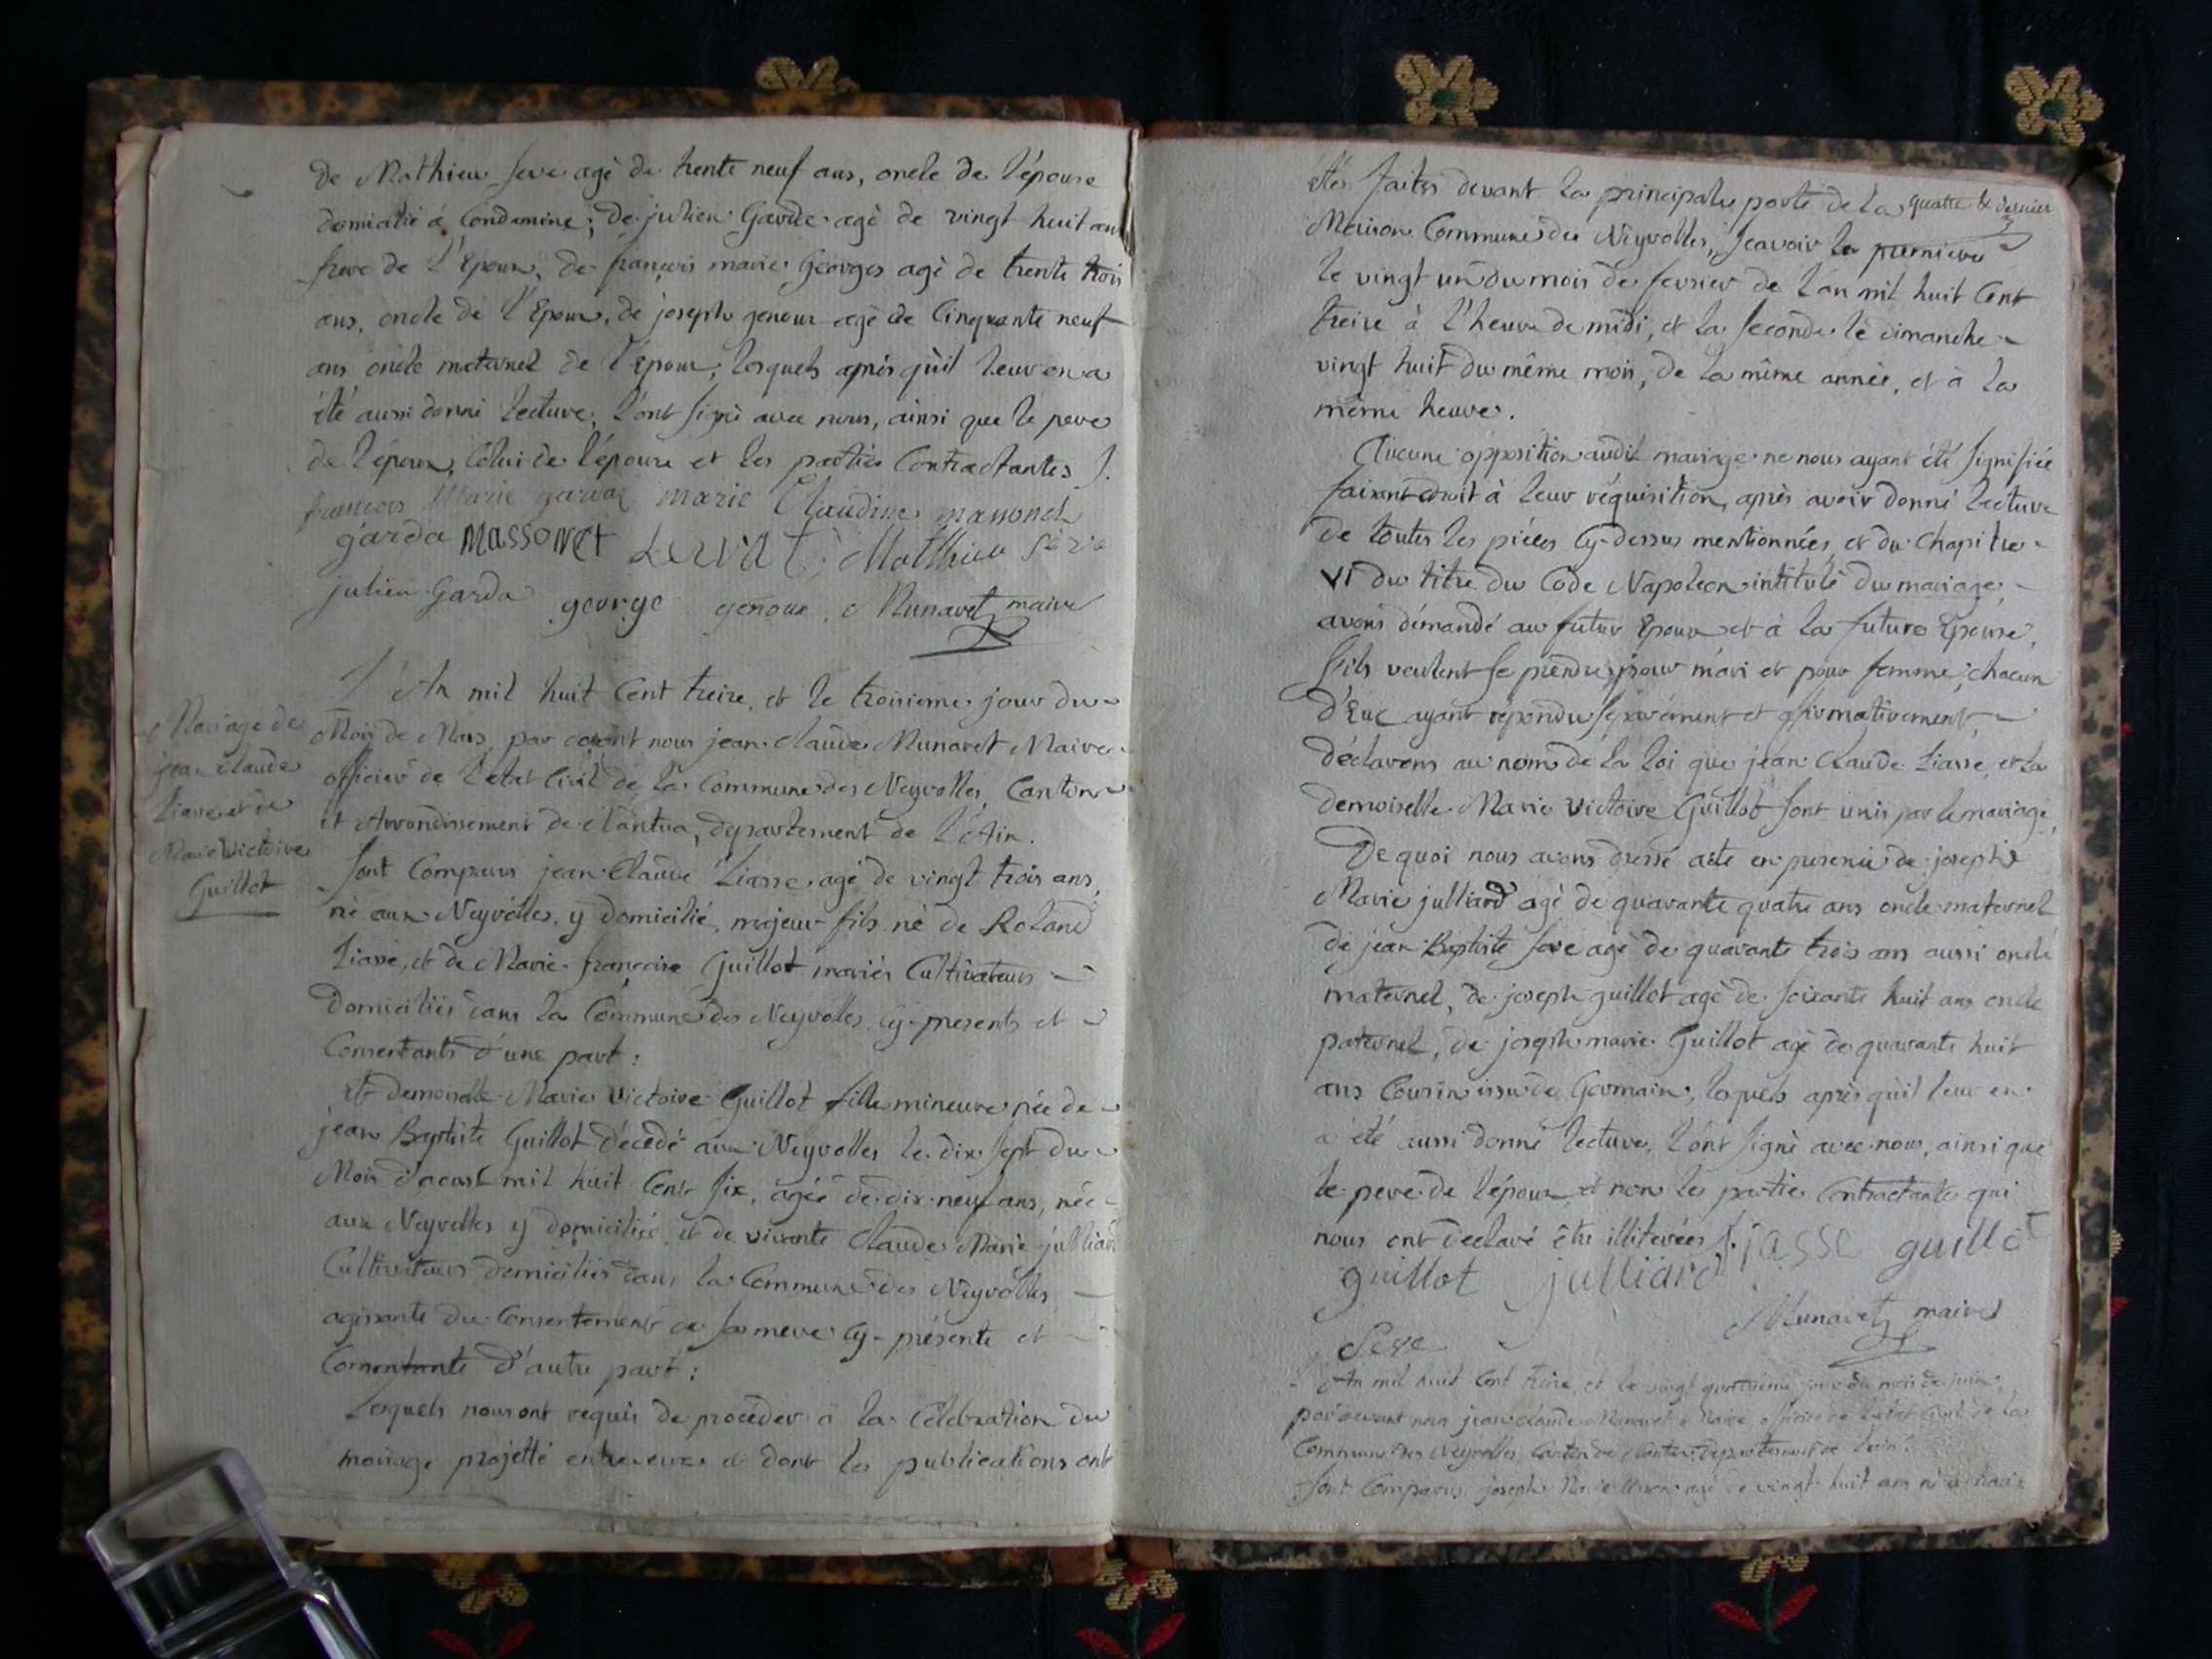 de Mathieu seve agé de trente neuf ans, oncle de l'épouse
domicilié á Condamine; de julien Garda agé de vingt huit ans
frere de l'Epoux, de françois marie Georges agé de trente trois
ans, oncle de l'Epoux, de joseph genoux agé de Cinquante neuf
ans oncle maternel de l'Epoux; lesquels aprés qu'il leur en a
été aussi donné lecture, l'ont signé avec nous, ainsi que le pere
de l'époux, Celui de l'épouse et les parties Contractantes J.
françois Marie garda marie Claudine massonet
garda massonet Mathieu seve
julien Garda george genoux Munaret maire
L'An mil huit Cent treize, et le troisieme jour du
Mois de Mars, par devant nous jean Claude Munaret Maire
officier de l'etat Civil de la Commune des Neyrolles, Canton
et Arrondissement de Nantua, département de l'Ain.
Mariage de
jean Claude
Liasse et de
Marie Victoire
Guillot
Sont Comparus jean Claude Liasse agé de vingt trois ans,
né aux Neyrolles, y domicilié, majeur fils né de Roland
Liasse, et de Marie françoise Guillot mariés Cultivateurs
domiciliés dans la Commune des Neyrolles Cy-presents et
Consentants d'une part:
et demoiselle Marie Victoire Guillot fille mineure née de
jean Baptiste Guillot décédé aux Neyrolles le dix sept du
Mois d'aoust mil huit Cent six, agée de dix neuf ans, née
aux Neyrolles y domiciliée, et de vivante Claude Marie julliard
Cultivateurs domiciliés dans la Commune des Neyrolles
agissante du Consentement de sa mere Cy-présente et
Consentante d'autre part:
Lesquels nous ont requis de procéder à la Célébration du
mariage projetté entre eux et dont les publications ont
étés faites devant la principale porte de la quatre & dernier
Maison Commune des Neyrolles, scavoir la premiere
le vingt un du mois de fevrier de l'an mil huit Cent
treize à l'heure de midi, et la seconde le dimanche
vingt huit du même mois, de la même année, et à la
même heure.
Aucune opposition audit mariage ne nous ayant été signifiée
faisant droit à leur réquisition, aprés avoir donné lecture
de toutes les piéces Cy-dessus mentionnées, et du Chapitre
VI du titre du Code Napoleon intitulé du mariage,
avons démandé au futur Epoux et à la future Epouse,
s'ils veulent se prendre pour mari et pour femme; chacun
d'Eux ayant répondu séparément et affirmativement,
déclarons au nom de la loi que jean Claude Liasse, et la
demoiselle Marie Victoire Guillot sont unis par le mariage,
De quoi nous avons dressé acte en presence de joseph
Marie julliard agé de quarante quatre ans oncle maternel
de jean Baptiste seve agé de quarante trois ans aussi oncle
maternel, de joseph guillot agé de soixante huit ans oncle
paternel, de joseph marie Guillot agé de quarante huit
ans Cousin issu de Germain, lesquels aprés qu'il leur en
a été aussi donné lecture, l'ont signé avec nous, ainsi que
le pere de l'époux, et non les parties Contractantes qui
nous ont déclaré être illiterées J. jasse guillot
guillot julliard
Munaret maire
Seve
L'An mil huit Cent treize, et le vingt quatrieme jour du mois de juin,
par devant nous jean Claude Munaret Maire officier de l'état Civil de la
Commune des Neyrolles, Canton de Nantua, département de l'ain.
Sont Comparus joseph Marie agé de vingt huit ans né à